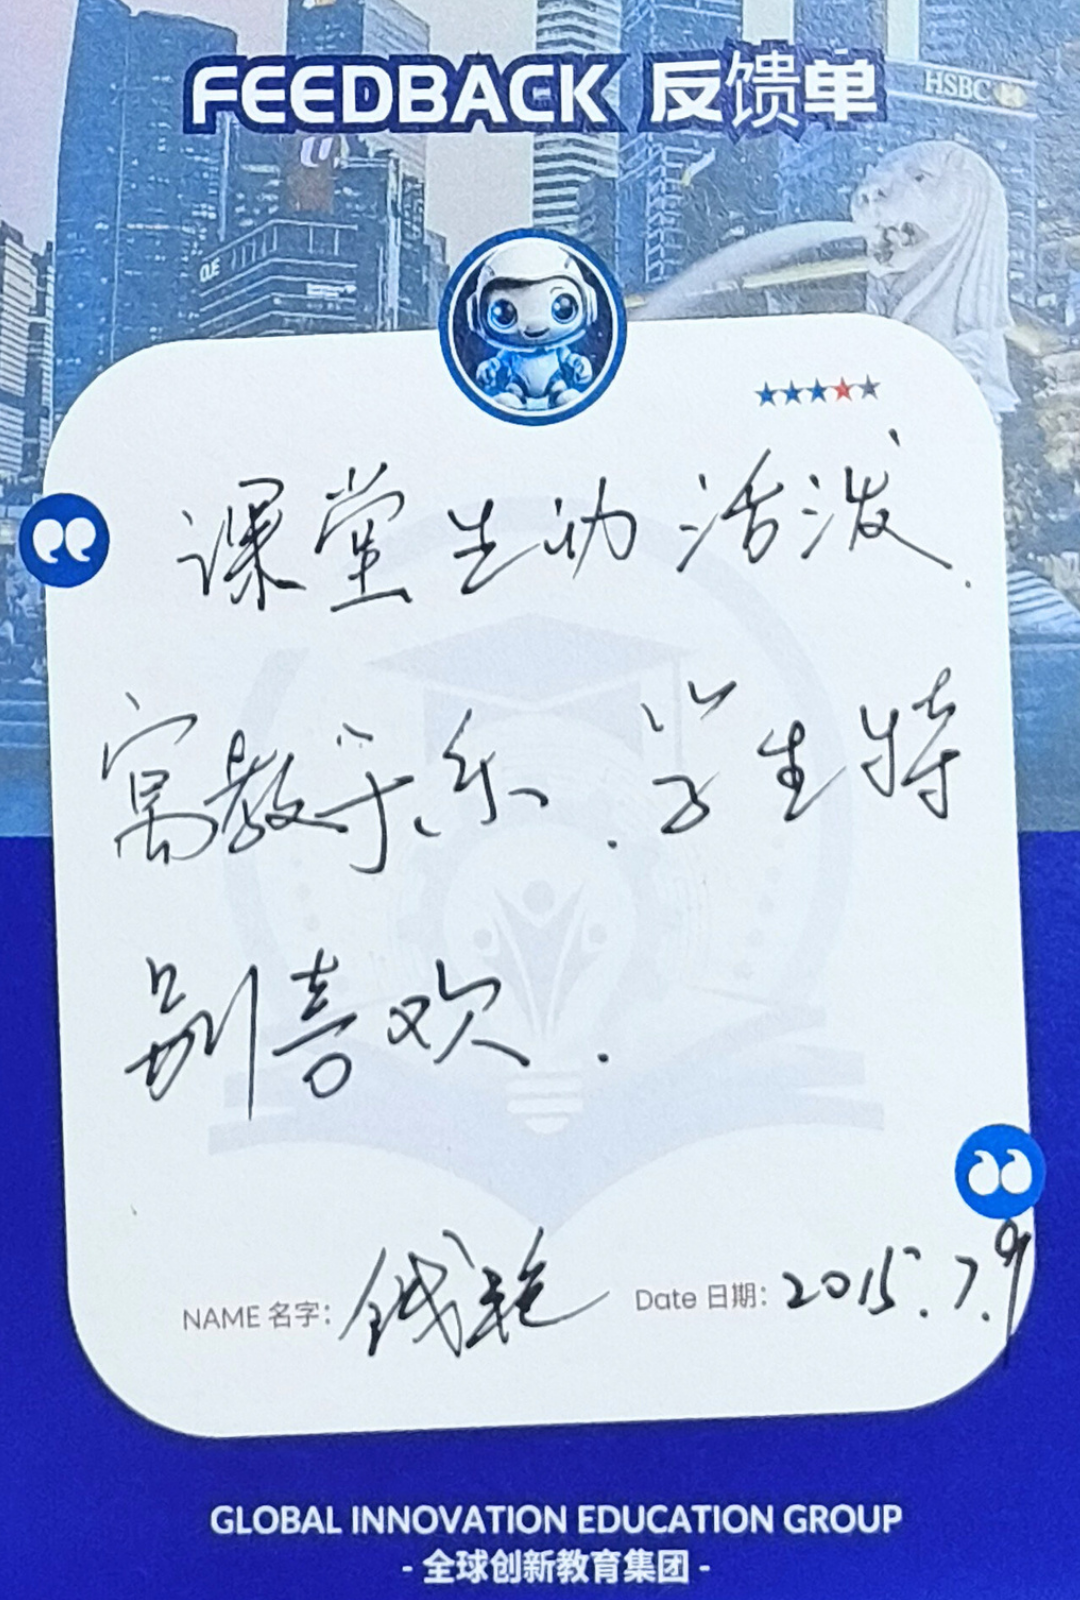 FEEDBACK 反馈单
HSBC
OUE
课堂生动活泼.
寓教于乐.学生特
别喜欢.
NAME 名字: 钱艳 Date 日期: 2015.7.9
GLOBAL INNOVATION EDUCATION GROUP
- 全球创新教育集团 -